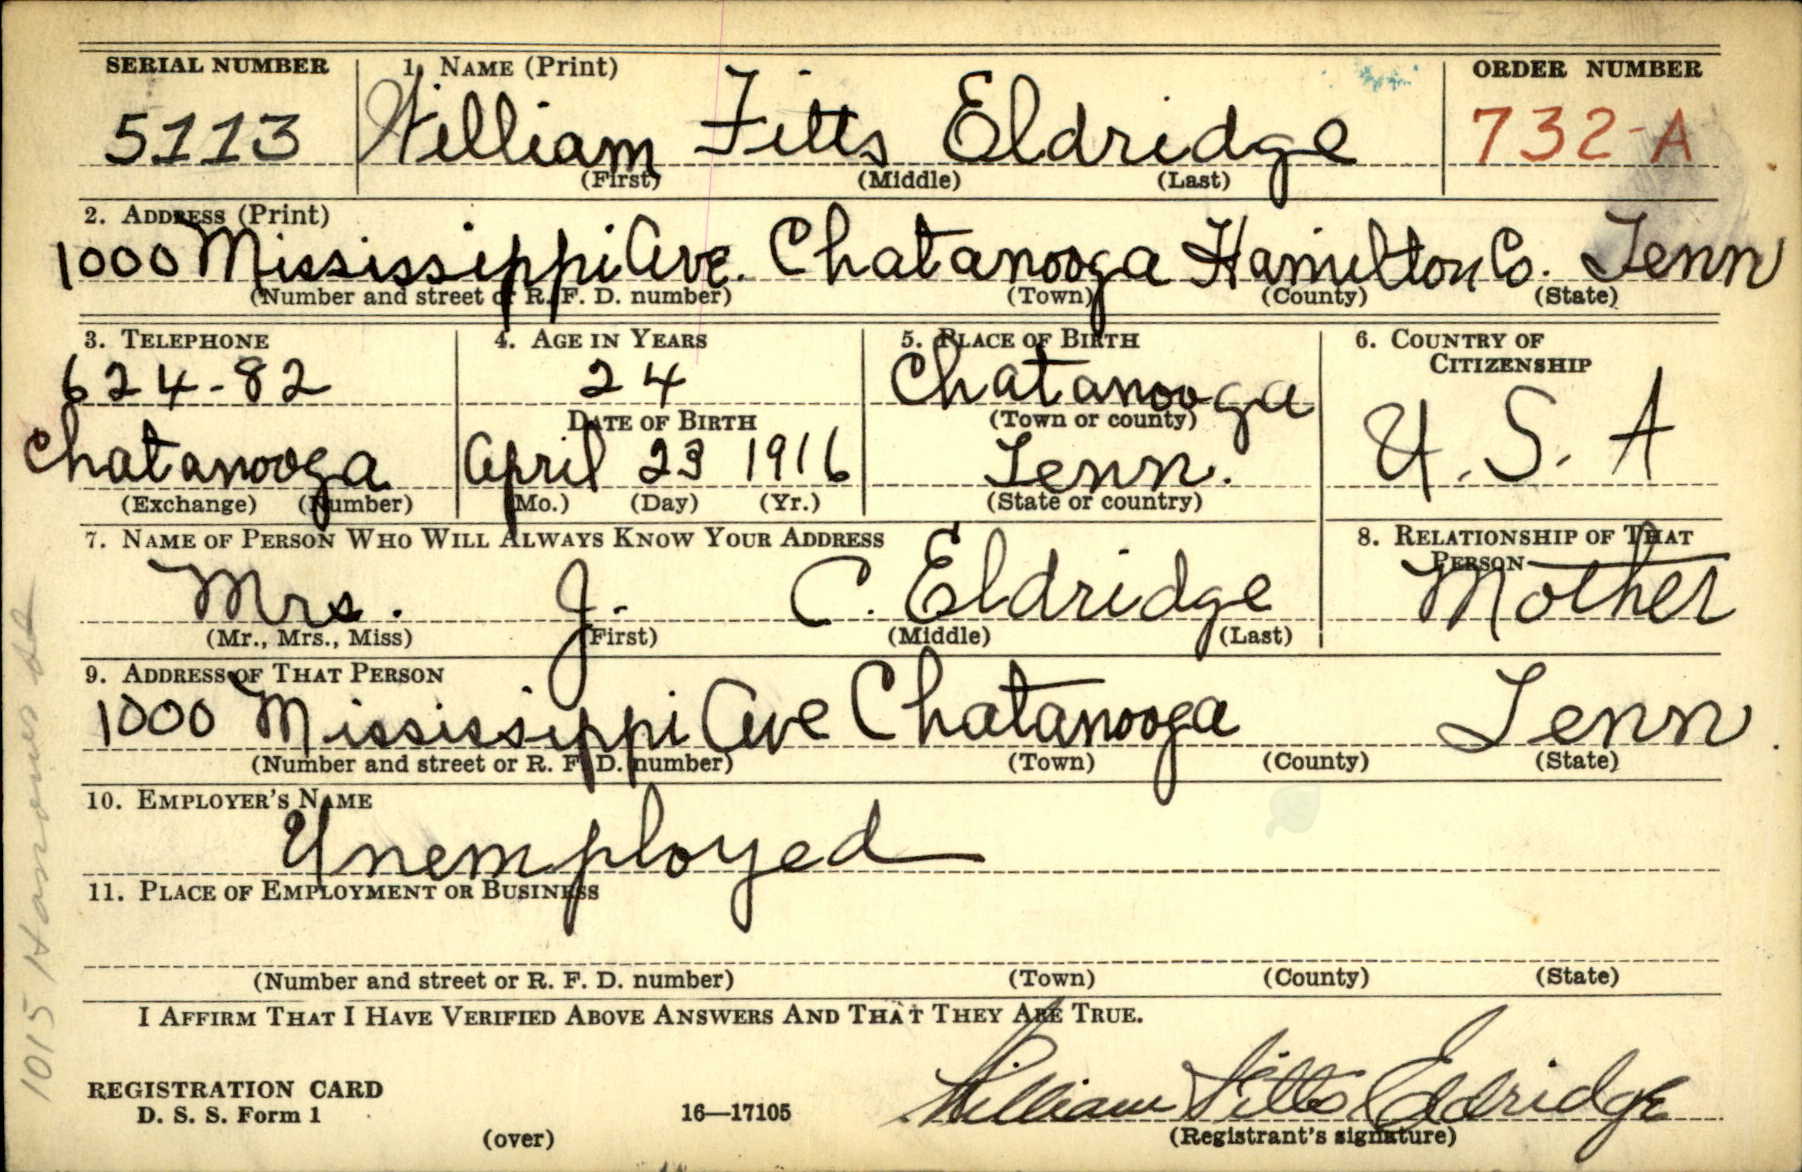 SERIAL NUMBER 1. NAME (Print) ORDER NUMBER
5113 William Fitts Eldridge 732-A
(First) (Middle) (Last)
2. ADDRESS (Print)
1000 Mississippi Ave. Chatanooga Hamilton Co. Tenn
(Number and street or R. F. D. number) (Town) (County) (State)
3. TELEPHONE 4. AGE IN YEARS 5. PLACE OF BIRTH 6. COUNTRY OF
CITIZENSHIP
624-82 24 Chatanooga
DATE OF BIRTH (Town or county)
U. S. A
Chatanooga April 23 1916 Tenn.
(Exchange) (Number) (Mo.) (Day) (Yr.) (State or country)
7. NAME OF PERSON WHO WILL ALWAYS KNOW YOUR ADDRESS 8. RELATIONSHIP OF THAT
PERSON
Mrs. J. C. Eldridge Mother
(Mr., Mrs., Miss) (First) (Middle) (Last)
9. ADDRESS OF THAT PERSON
1000 Mississippi Ave Chatanooga Tenn
(Number and street or R. F. D. number) (Town) (County) (State)
10. EMPLOYER'S NAME
Unemployed
11. PLACE OF EMPLOYMENT OR BUSINESS
(Number and street or R. F. D. number) (Town) (County) (State)
I AFFIRM THAT I HAVE VERIFIED ABOVE ANSWERS AND THAT THEY ARE TRUE.
REGISTRATION CARD
D. S. S. Form 1 16—17105 William Fitts Eldridge
(over) (Registrant's signature)
1015